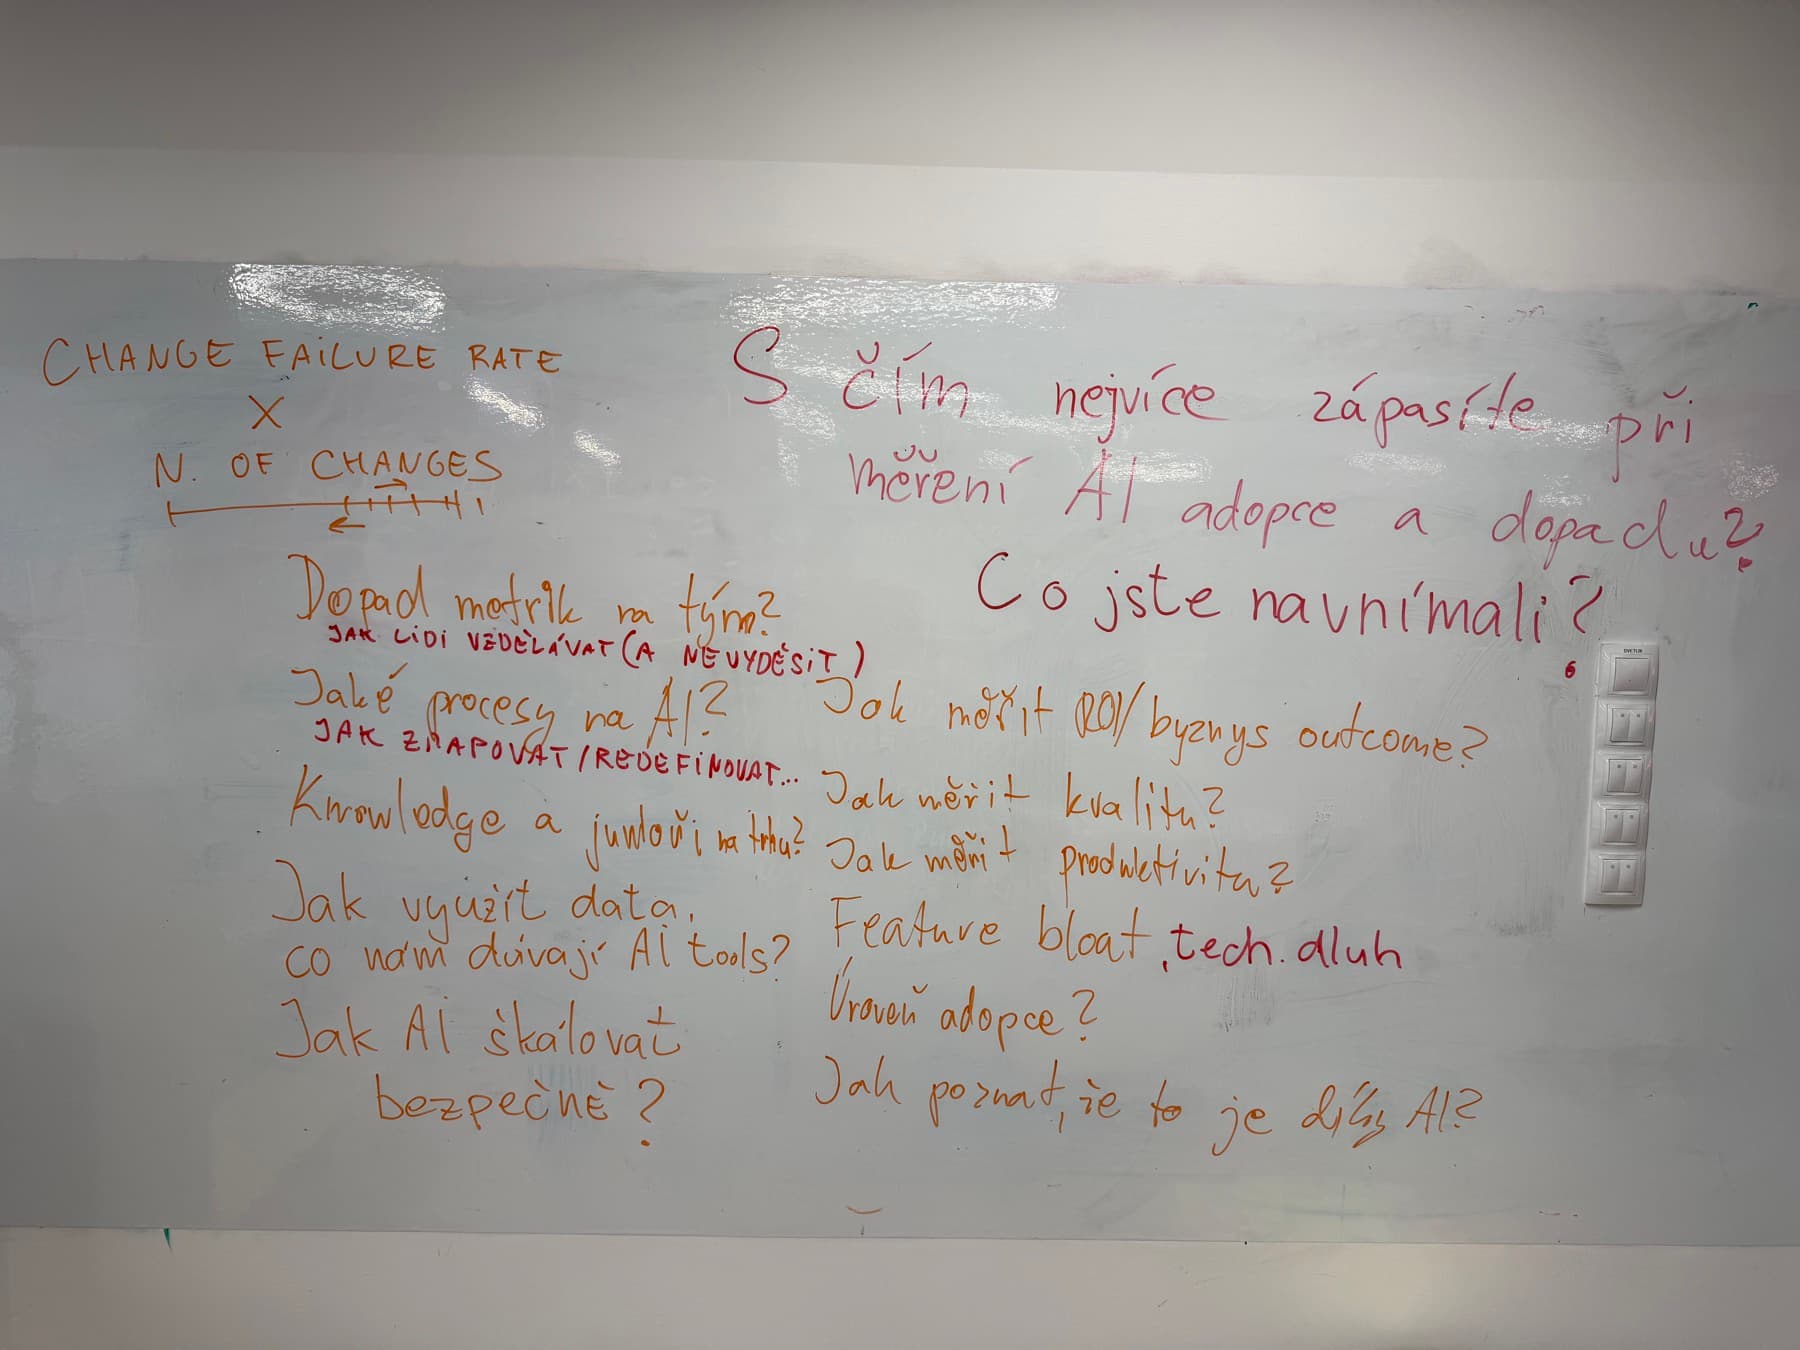 CHANGE FAILURE RATE
X
N. OF CHANGES
S čím nejvíce zápasíte při
měření AI adopce a dopadu?
Co jste navnímali?
Dopad metrik na tým?
JAK LIDI VZDĚLÁVAT (A NEVYDĚSIT)
Jaké procesy na AI?
JAK ZMAPOVAT/REDEFINOVAT...
Knowledge a junioři na trhu?
Jak využít data,
co nám dávají AI tools?
Jak AI škálovat
bezpečně?
6
Jak měřit ROI/byznys outcome?
Jak měřit kvalitu?
Jak měřit produktivitu?
Feature bloat, tech. dluh
Úroveň adopce?
Jak poznat, že to je díky AI?